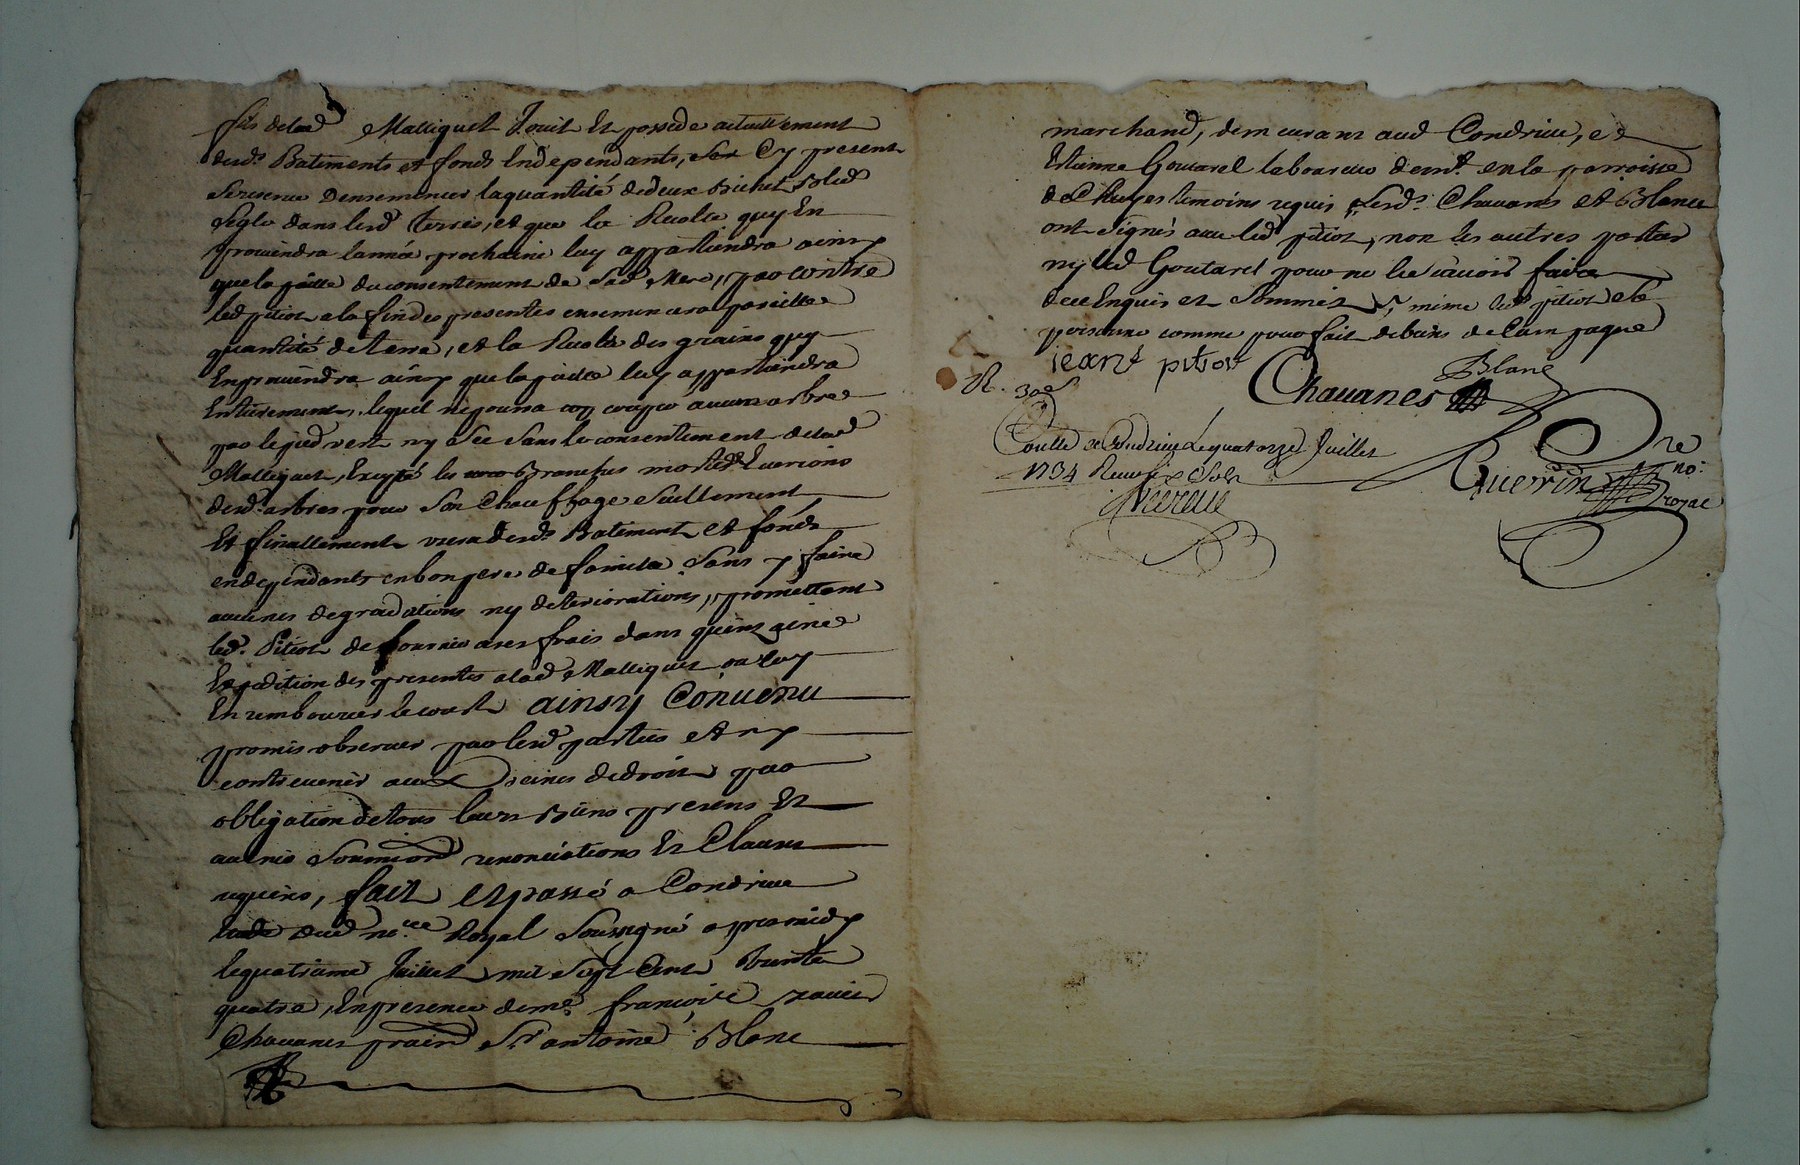 fils de lad Malliquet Jouit Et possede actuellement
desds. Batiments et fonds Independants, Cy present
Sera tenu Densemencer la quantité de deux bichets Bled
Segle dans lesd Terres, et que la Recolte quy En
prouiendra lannée prochaine luy appartiendra ainsy
que la paille du consentement de Sad. Mere, par contre
led pitiot a la fin des presentes ensemencera pareille
quantité de terre, et la Recolte des grains quy
Enprouiendra ainsy que la paille luy appartiendra
Entierement, lequel ne pourra couper aucuns arbres
par le pied vert ny Sec Sans le consentement de lad
Malliquet, Excepté les Branches mortes
desds. arbres pour Son Chauffage Seullement,
Et finallement usera desds Batiments et fonds
endependants en bon pere de famille Sans y faire
aucunes degradations ny deteriorations, promettant
led. Pitiot de fournir a ses frais dans quinzaine
Expedition des presentes a lad Malliquet ou luy
En rembourcer le coust ainsy Conuenu
promis obseruer par lesd parties et ny
contreuenir aux peines de droit par
obligation de tous leurs Biens presens Et
auenir Soumions renonciations Et Clauses
requises, fait et passé a Condrieu
dud nore Royal Soussigné apres midy
le quatrieme Juillet mil Sept Cent trente
quatre, En presence de me. françois xauier
Chauanes Sr. antoine Blanc
marchand, demeurans aud Condrieu, et
Estienne Goutarel laboureur demt. en la parroisse
de Chuyes temoins requis Lesds. Chauanes et Blanc
ont Signés auec led pitiot, non les autres parties
ny led Goutarel pour ne le sauoir faire
de ce Enquis et Sommés, même led pitiot de la
comme pour fait de baux de Campagne
jean pitiot
Blanc
Chauanes
R. 30s
Coullé a Condrieu Le quatorze Juillet
1734 Receu six Sols
Guerin
no:
royal